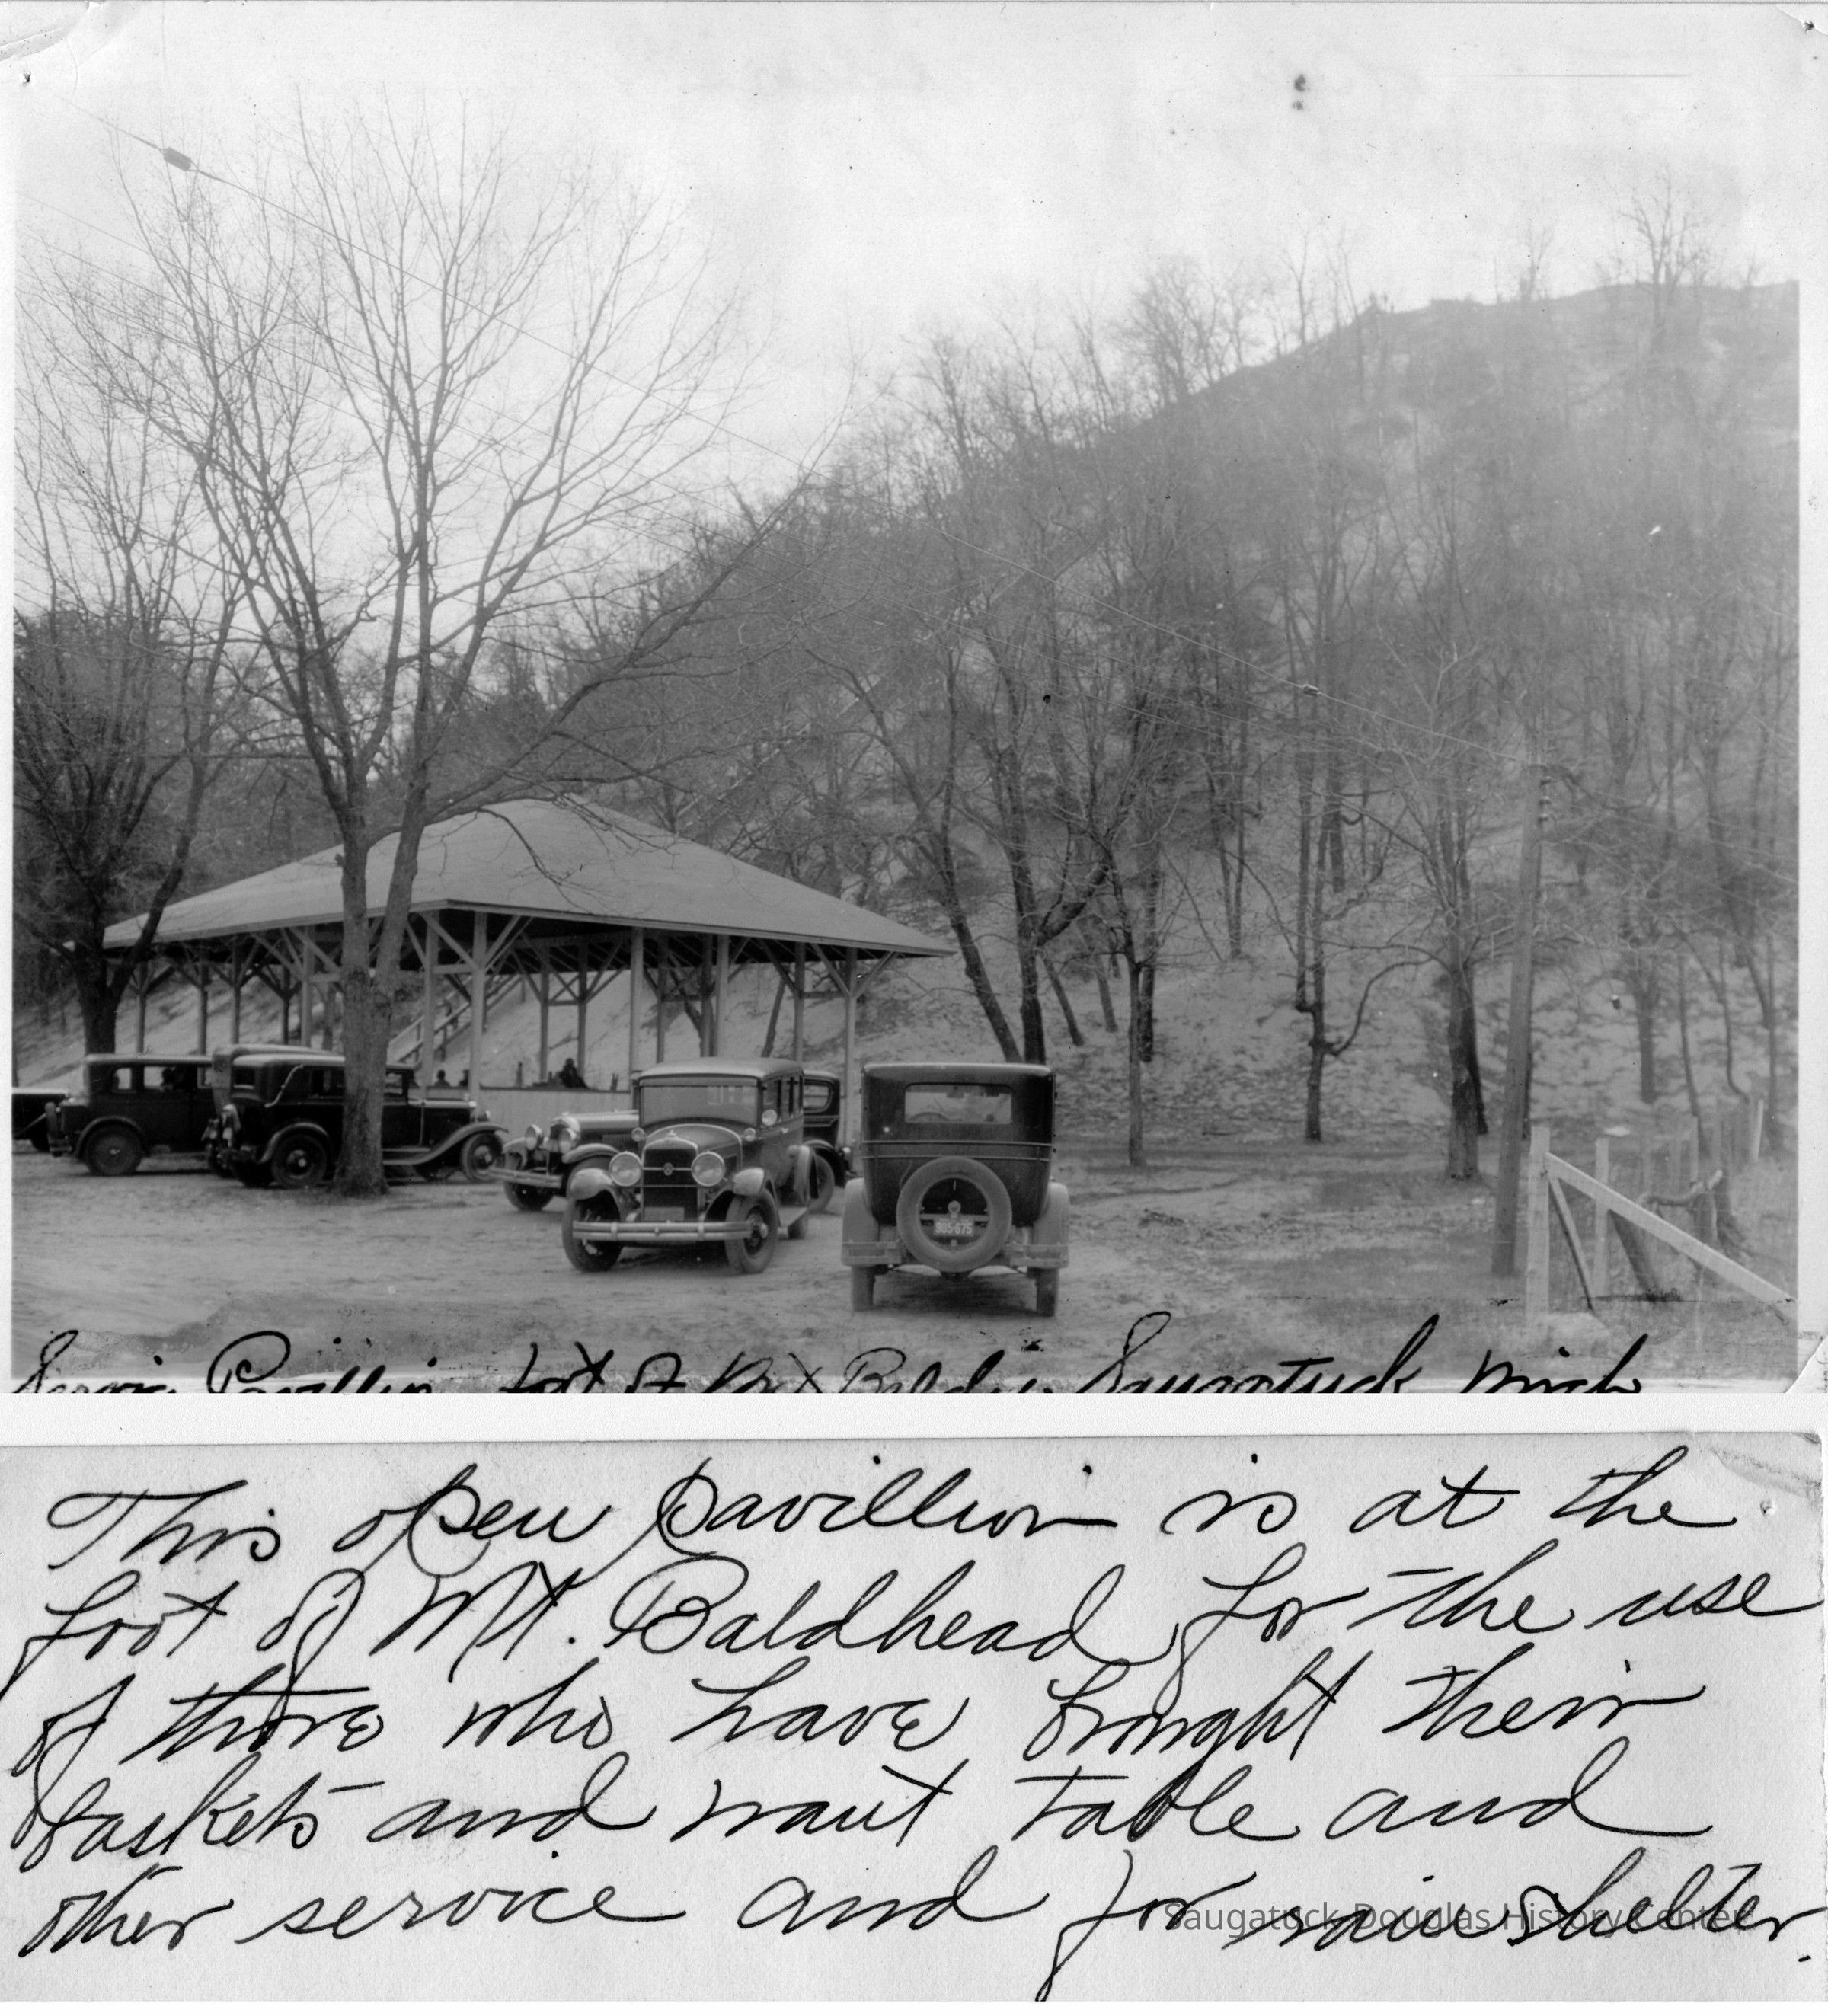 805-675
Service Pavillion foot of Mt Baldhead Saugatuck Mich
This open pavillion is at the
foot of Mt. Baldhead, for the use
of those who have brought their
baskets and want table and
other service and for rain shelter.
Saugatuck-Douglas History Center